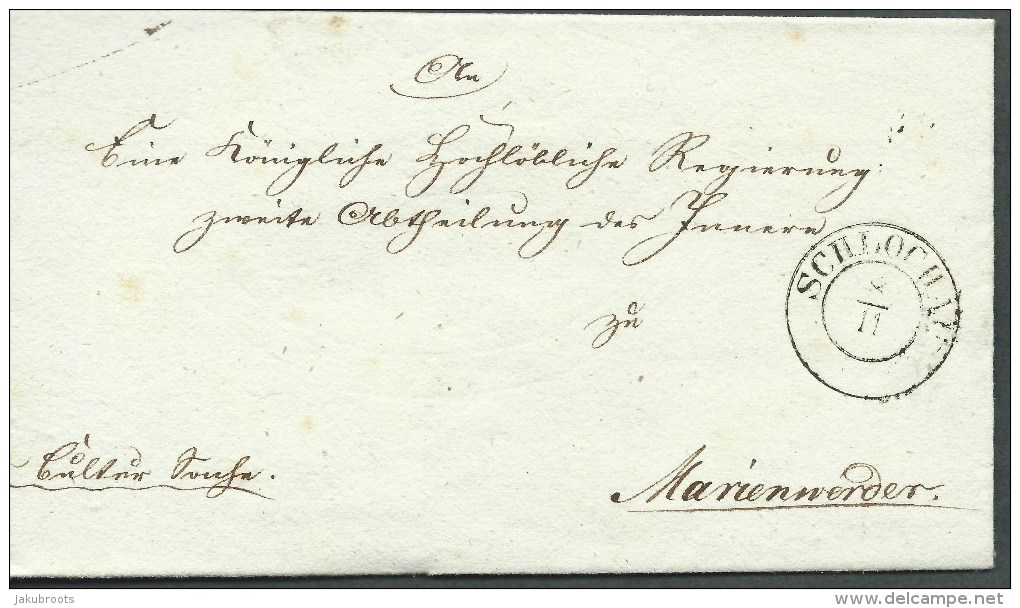 An
Eine Königliche Hochlöbliche Regierung
zweite Abtheilung des Innern
SCHLOCHAU
11
zu
Cultur Sache.
Marienwerder.
jakubroots
delcampe.net